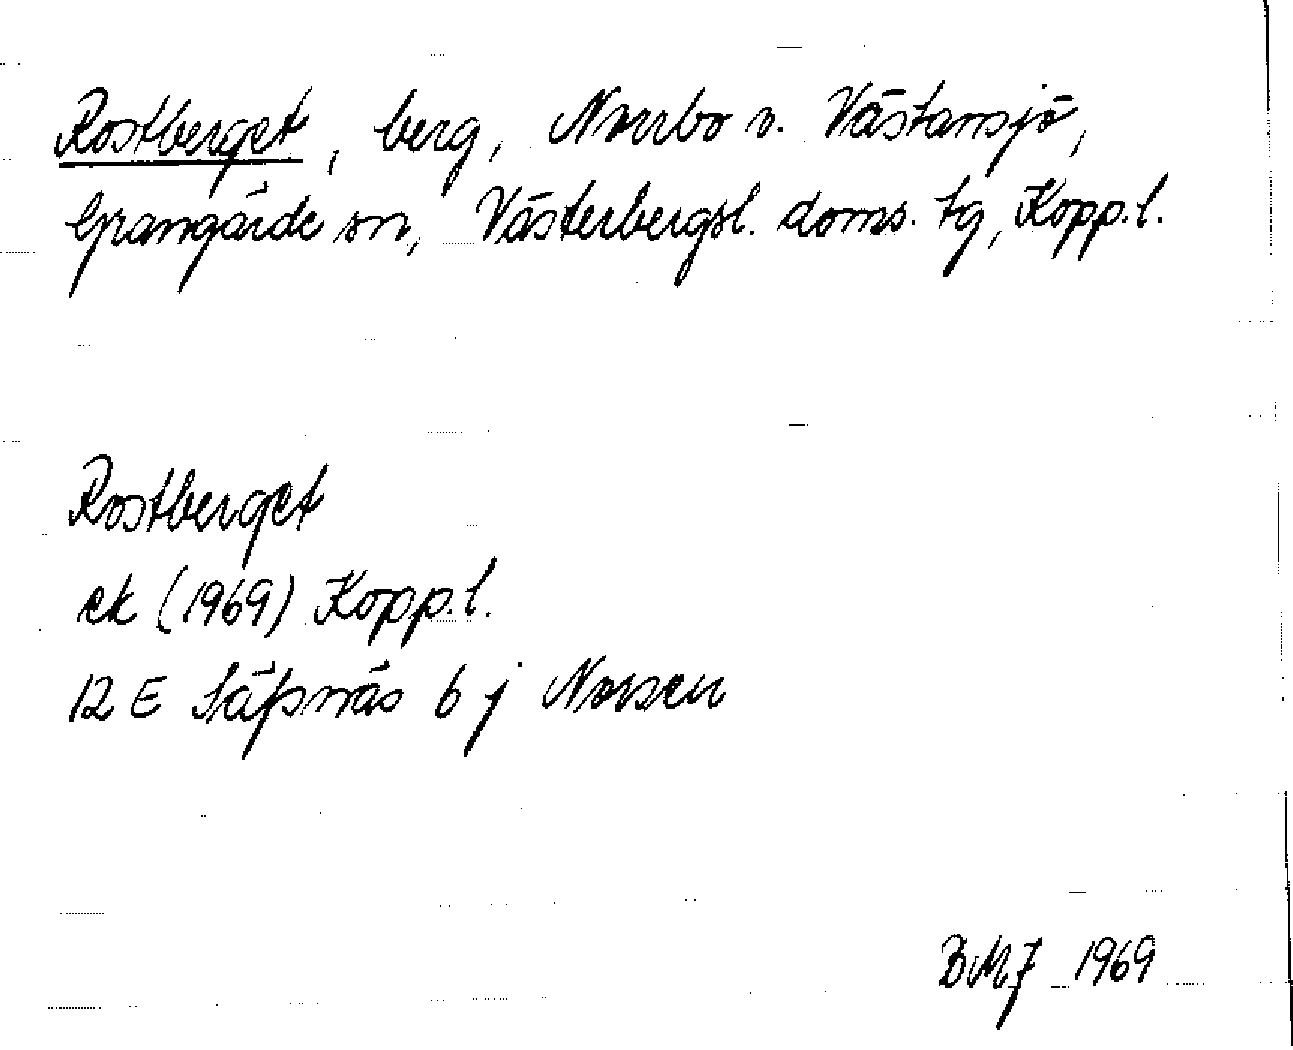 Rostberget, berg, Norrbo v. Västansjö,
Grangärde sn, Västerbergsl. doms. tg, Kopp.l.
Rostberget
ek (1969) Kopp.l.
12 E Säfsnäs 6 j Norsen
BMJ 1969